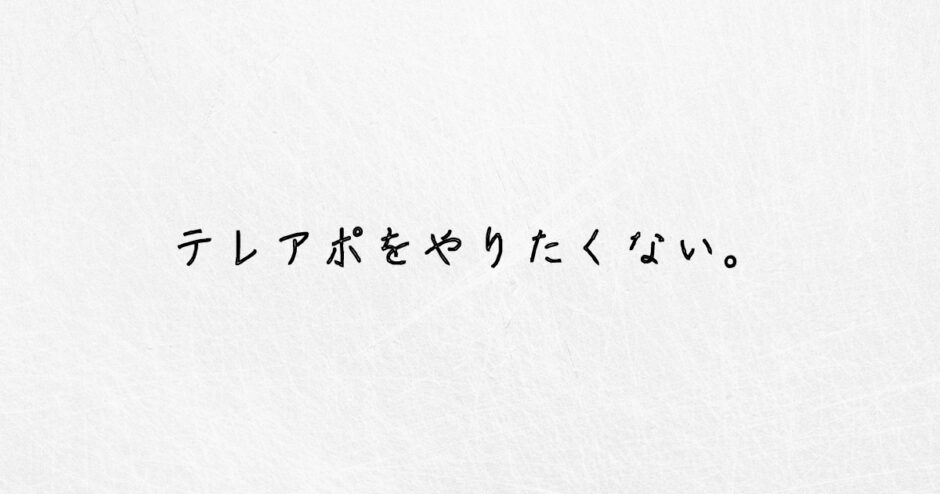 テレアポをやりたくない。